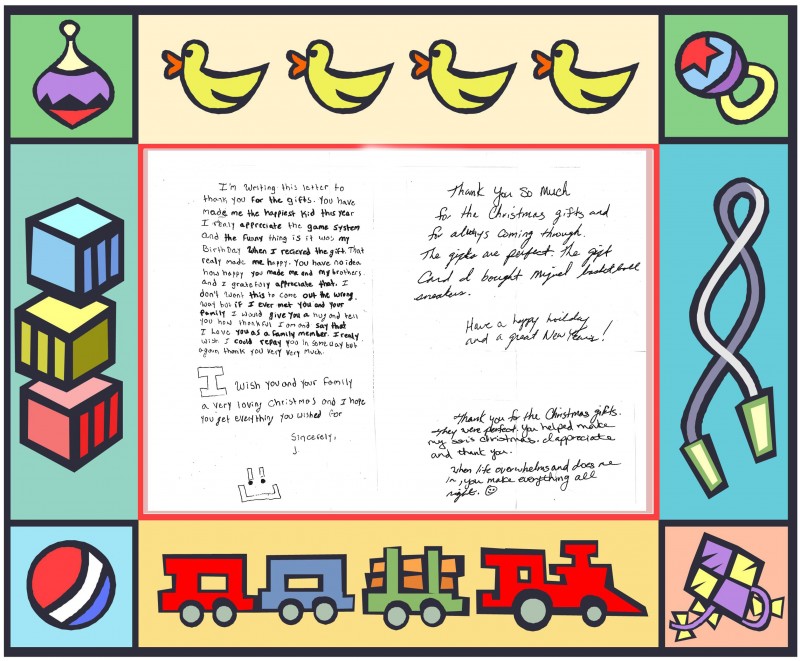 I'm Writing this letter to
thank you for the gifts. You have
made me the happiest kid this year
I really appreciate the game system
and the funny thing is it was my
BirthDay when I recieved the gift. That
really made me happy. You have no idea
how happy you made me and my brothers
and I gratefully appreciate that. I
don't want this to come out the wrong
way but if I ever met you and your
family I would give you a hug and tell
you how thankful I am and say that
I Love you as a family member. I really
wish I could repay you in some way but
again thank you very very much.
I Wish you and your family
a very loving Christmas and I hope
you get everything you wished for
Sincerely,
J.
Thank You So Much
for the Christmas gifts and
for always coming through.
The gifts are perfect. The gift
Card I bought Miguel basketball
sneakers.
Have a happy holiday
and a great New Years!
Thank you for the Christmas gifts.
They were perfect. You helped make
my son's christmas. I appreciate
and thank you.
When life overwhelms and does me
in, you make everything all
right.